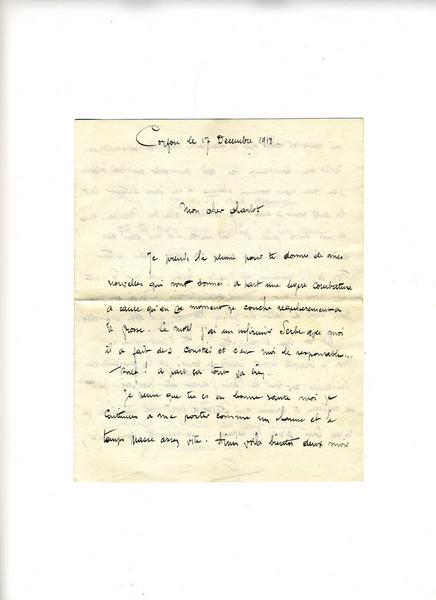 Corfou le 17 Decembre 1918.
Mon cher Charlot
Je prends la plume pour te donner de mes
nouvelles qui sont bonnes. à part une légère courbature
à cause qu'en ce moment je couche regulierement à
la . Ce matin j'ai un infirmier Serbe que moi
il a fait des et c'est moi le responsable...
! à part ça tout va bien.
Je pense que tu es en bonne santé moi je
continue à me porter comme un charme et le
temps passe assez vite. Ainsi voila bientot deux mois